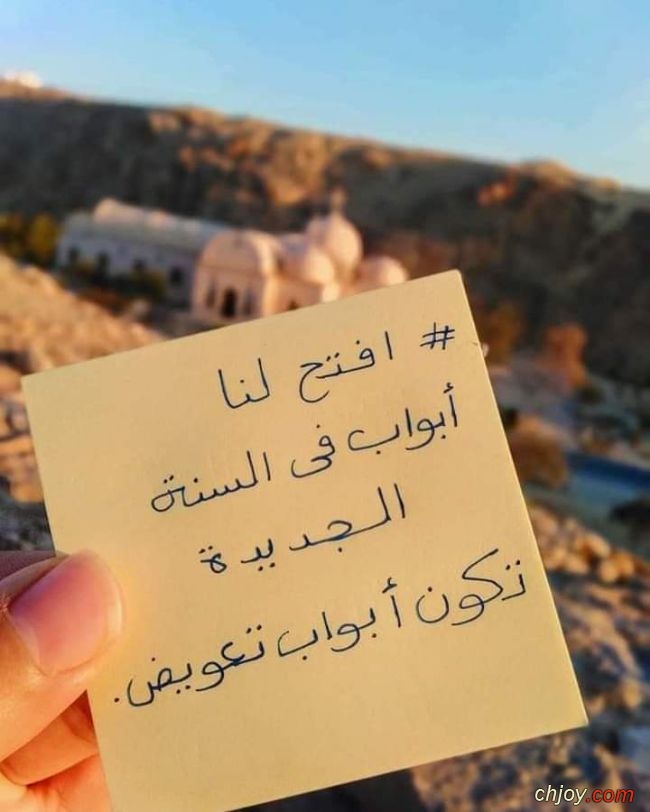 # افتح لنا
أبواب فى السنة
الجديدة
تكون أبواب تعويض.
chjoy.com